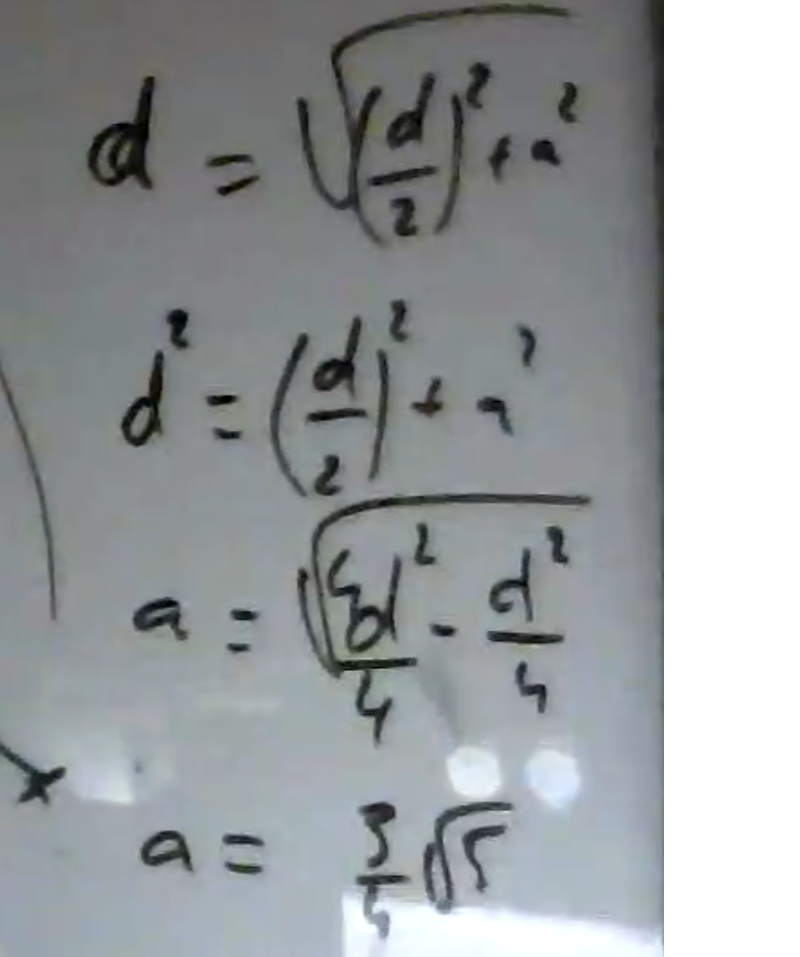 d = √((d/2)² + a²)
d² = (d/2)² + a²
a = √(4d²/4 - d²/4)
a = 3/4 √